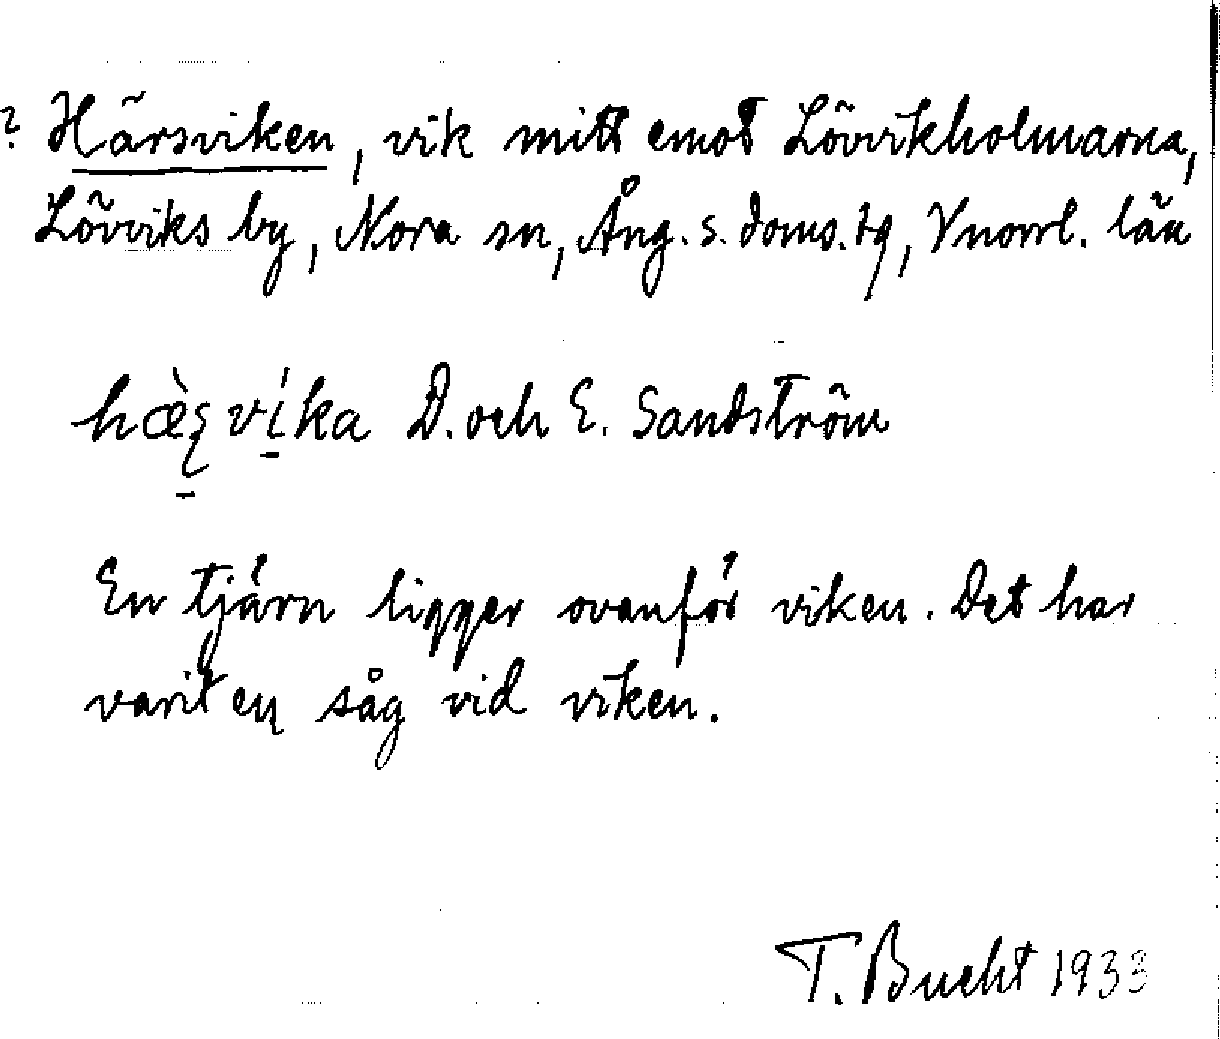 ? Härsviken, vik mitt emot Lövvikholmarna,
Lövviks by, Nora sn, Ång. s. doms. tg, Vnorrl. län
D. och E. Sandström
En tjärn ligger ovanför viken. Det har
varit en såg vid viken.
T. Bucht 1933